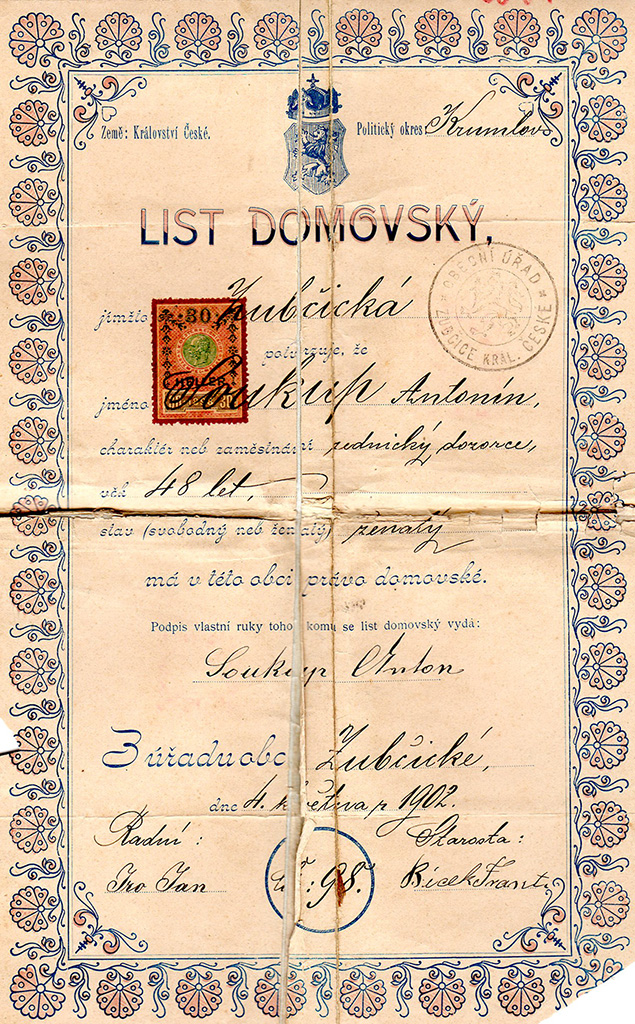 Země: Království České.
Politický okres Krumlov
LIST DOMOVSKÝ,
OBECNÍ ÚŘAD
ZUBČICE KRÁL. ČESKÉ
jímžto Zubčická
30
potvrzuje, že
HELLER
jméno Soukup Antonín,
charaktér neb zaměstnání zednický dozorce,
věk 48 let,
stav (svobodný neb ženatý) ženatý
má v této obci právo domovské.
Podpis vlastní ruky toho, komu se list domovský vydá:
Soukup Anton
Z úřadu obce Zubčické,
dne 4. května r 1902.
Radní:
Starosta:
Jan
98.